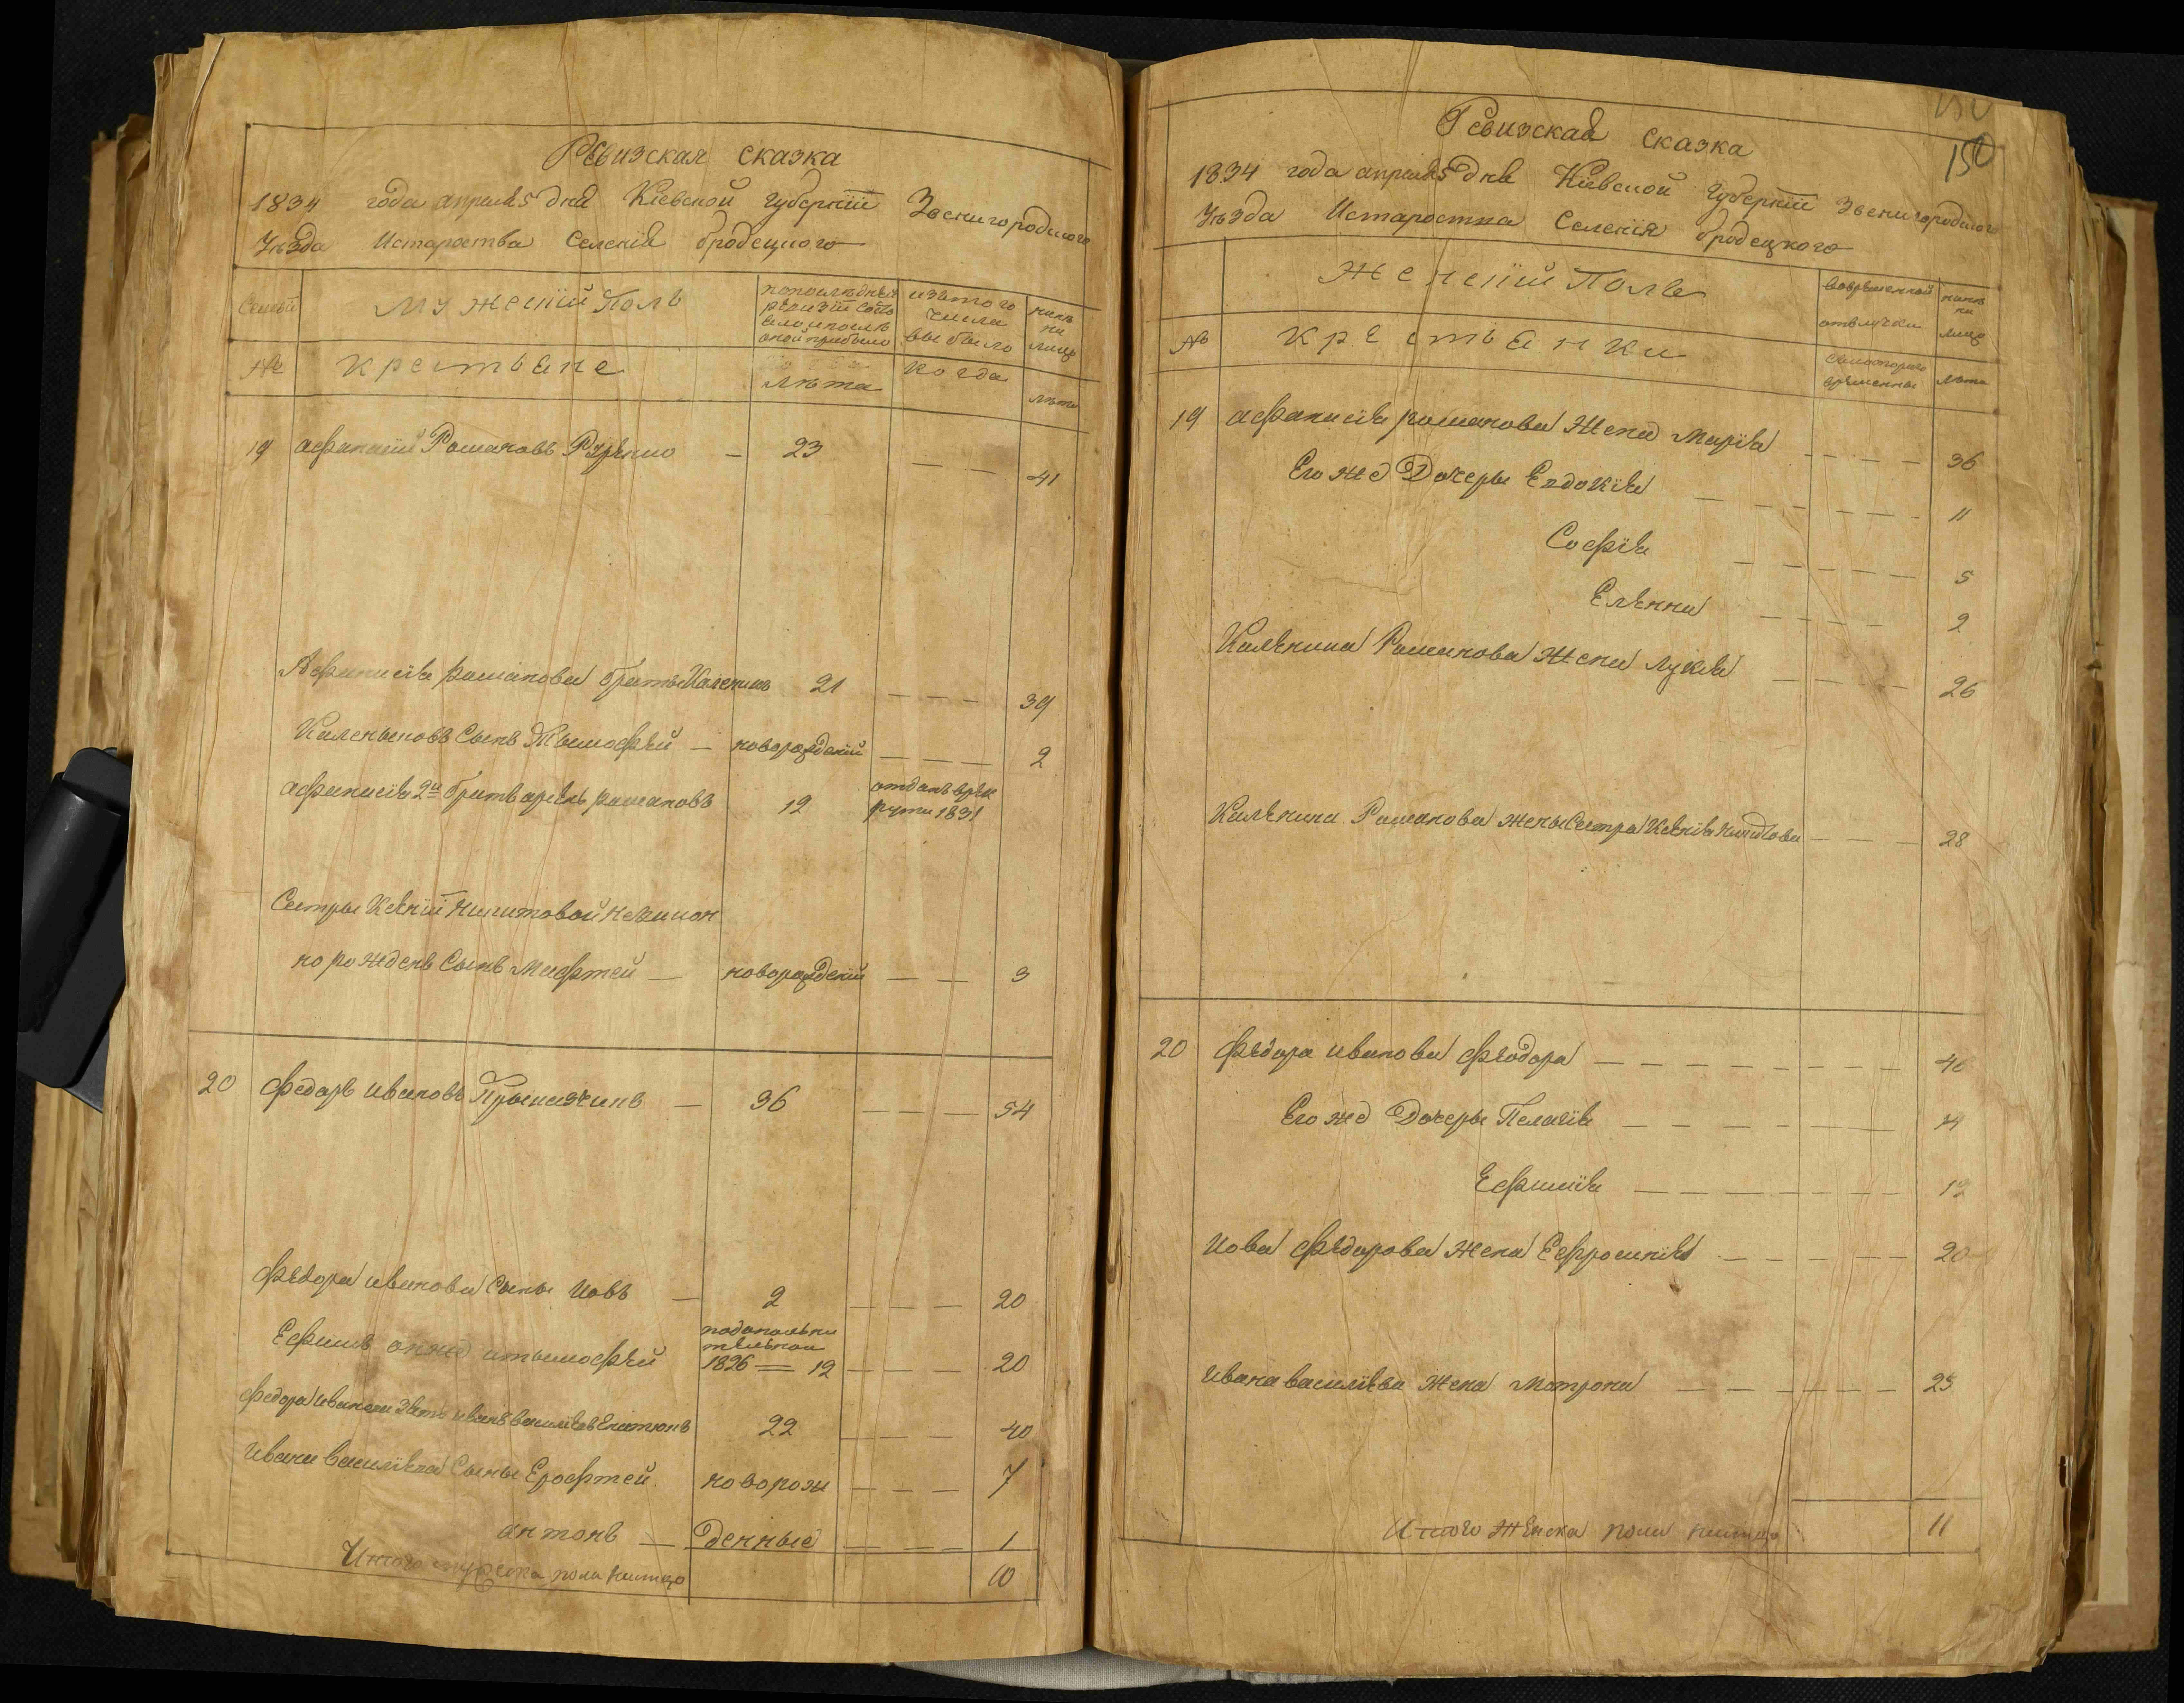 Ревизская сказка
1834 года апреля 5 дня Кіевской Губерніи Звенигородского
Уезда Истароства Селенія бродецкого
Семьи
Мужескій Полъ
попоследней ревизіи состояло, ипосле оной прибыло
изътого числа выбыло
ныне на лицо
№
Крестьяне
лета
когда
лета
19 афанасій Романовъ — 23 — — — 41
Афанасія Романова братъ Каленикъ 21 — — — 39
Калениковъ Сынъ Тымофей — новорожденій — — — 2
афанасія 2й братъ романовъ 12 отданъ врекруты 1831
Сестры Ксеніи Никитовой незакон
но рожденъ Сынъ — новорожденій — — 3
20 Федоръ Ивановъ — 36 — — — 54
Федора иванова Сыны Іовъ — 2 — — — 20
Ефимъ онже итымофей 1826 — 12 — — — 20
Федора Иванова зять иванъ васильевъ 22 — — — 40
Ивана васильева Сыны Ерофтей новорож — — — 7
антонъ — денные — — — 1
Итого мужеска пола налицо 10
150
Ревизская сказка
1834 года апреля 5 дня Кіевской Губерніи Звенигородского
Уезда Истароства Селенія бродецкого
Женскій Полъ
вовременной отлучке
ныне на лицо
№
Крестьянки
лета
19 афанасія романова Жена Марія — — — 36
Его же Дочеры Евдокія — — — 11
Софія — — — 5
Еленна — — — 2
Каленика Романова Жена Лукія — — — 26
Каленика Романова жены Сестра Ксенія Никитова — — — 28
20 федора иванова феодора — — — 40
Его же Дочеры Пелагія — — — 14
Ефимія — — — 12
Іова федорова Жена Ефросинія — — — 20
Ивана василіева Жена Матрона — — — 25
Итого Женска пола налицо 11